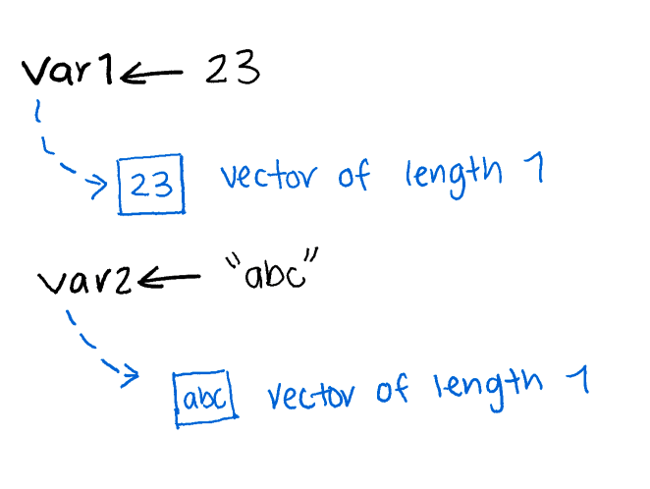 var1← 23
23 vector of length 1
var2← "abc"
abc vector of length 1